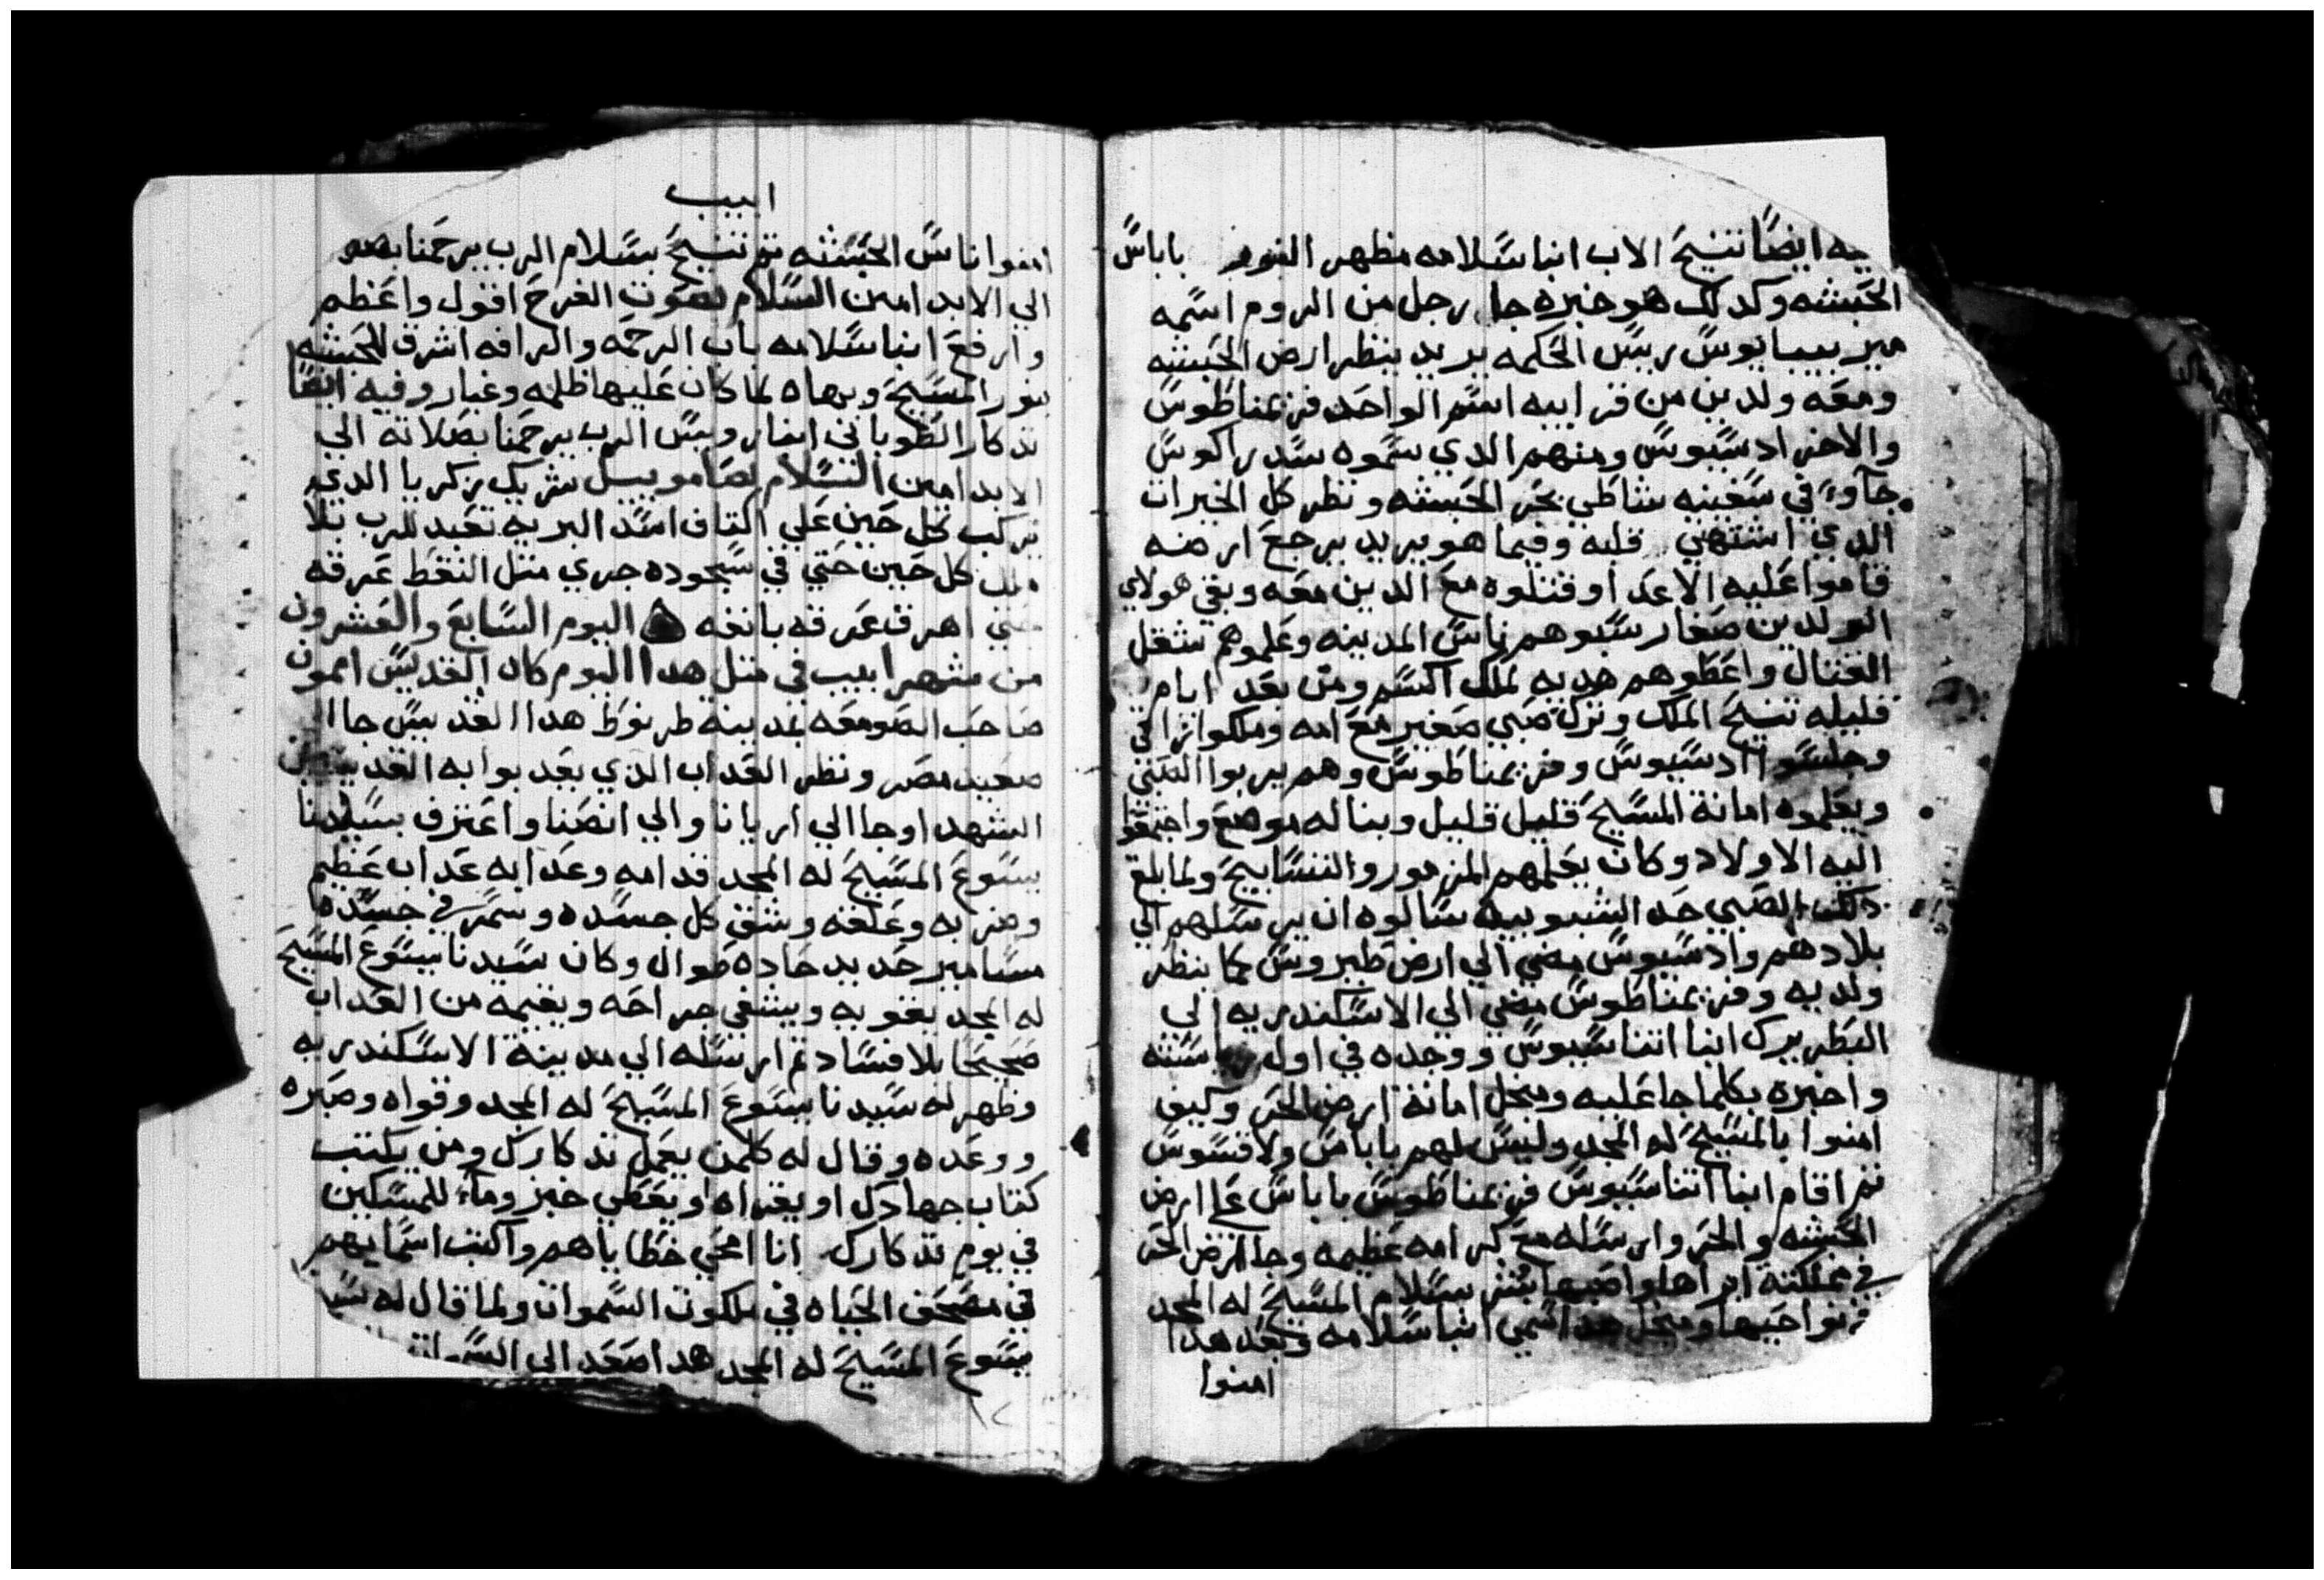 فيه ايضًا تنيح الاب انبا سلامه مظهر النور باباس
الحبشه وكدلك هو خبره جا رجل من الروم اسمه
ميربيبايوس ريس الحكمه يريد ينظر ارض الحبشه
ومعه ولدين من قرايبه اسم الواحد فرمناطوس
والاخر ادسيوس ومنهم الدي سموه سدراكوس
جآوا في سفينه شاطي بحر الحبشه ونظر كل الخيرات
الدي اشتهي قلبه وفيما هو يريد يرجع ارضه
قاموا عليه الاعدا وقتلوه مع الدين معه وبقي هولاي
الولدين صغار سبوهم ناس المدينه وعلموهم شغل
القتال واعطوهم هديه لملك اكسم ومن بعد ايام
قليله تنيح الملك وترك صبي صغير مع امه وملكوا
وجلسوا ادسيوس وفرمناطوس وهم يربوا الصبي
ويعلموه امانة المسيح قليل قليل وبنا له موضع واجمعوا
اليه الاولاد وكان يعلمهم المزمور والتسابيح ولما بلغ
دلك الصبي حد الشبوبيه سالوه ان يرسلهم الي
بلادهم وادسيوس مضي الي ارض طيروس كما ينظر
ولديه وفرمناطوس مضي الي الاسكندريه الي
البطريرك انبا اتناسيوس ووجده في اول سنته
واخبره بكلما جا عليه ومنجل امانة ارض الحر وكيف
امنوا بالمسيح له المجد وليس لهم باباس ولا قسوس
تم اقام انبا اتناسيوس فرمناطوس باباس علي ارض
الحبشه والحر وارسله مع كرامه عظيمه وجا ارض الحر
في مملكته ابراها واصبها بشر بسلام المسيح له المجد
في نواحيها ومنجل هدا اسمي انبا سلامه وبعد هدا
امنوا
ابيب
امنوا ناس الحبشه تم تنيح بسلام الرب يرحمنا بصلاته
الي الابد امين السلام بصوت الفرح اقول واعظم
وارفع انبا سلامه باب الرحمه والرافه اشرق للحبشه
بنور المسيح وبهاه لما كان عليها ظلمه وغبار وفيه ايضًا
تدكار الطوباني انفار ويس الرب يرحمنا بصلاته الي
الابد امين السلام لصامويييل شريك زكريا الدي
يركب كل حين علي اكتاف اسد البريه تعبد للرب بلا
ملل كل حين حتي في سجوده جري متل النقط عرقه
حتي اهرق عرقه بانفه اليوم السابع والعشرون
من شهر ابيب في متل هدا اليوم كان القديس امون
صاحب الصومعه بمدينة طرنوط هدا القديس جا الي
صعيد مصر ونظر العداب الدي يعدبوا به القديسين
الشهدا وجا الي اريانا والي انصنا واعترف بسيدنا
يسوع المسيح له المجد قدامه وعدابه عداب عظيم
وضربه وعلقه وشق كل جسده وسمر في جسده
مسامير حديد حاده طوال وكان سيدنا يسوع المسيح
له المجد يقويه ويشفي جراحه ويقيمه من العداب
صحيحًا بلا فساد تم ارسله الي مدينة الاسكندريه
وظهر له سيدنا يسوع المسيح له المجد وقواه وصبره
ووعده وقال له كلمن يعمل تدكارك ومن يكتب
كتاب جهادك او يقراه او يعطي خبز وماء للمسكين
في يوم تدكارك انا امحي خطاياهم واكتب اسمايهم
في مصحف الحياه في ملكوت السموات ولما قال له
يسوع المسيح له المجد هدا صعد الي السموات